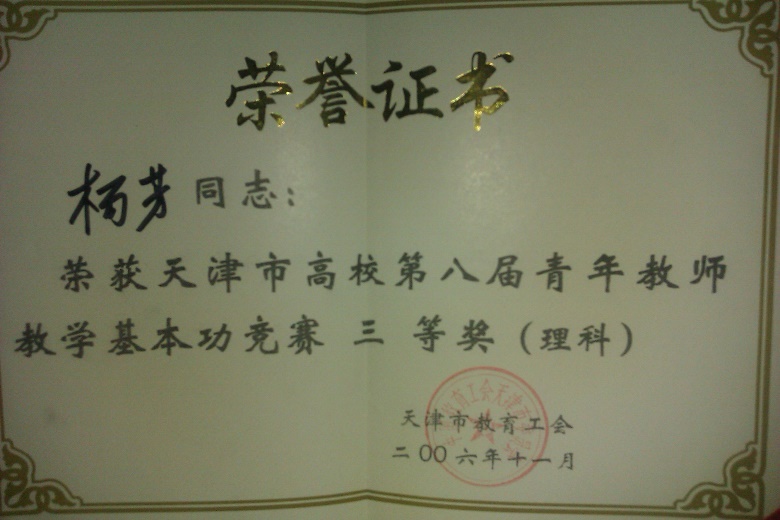 荣誉证书
杨芳同志：
荣获天津市高校第八届青年教师
教学基本功竞赛 三 等奖（理科）
天津市教育工会
二00六年十一月